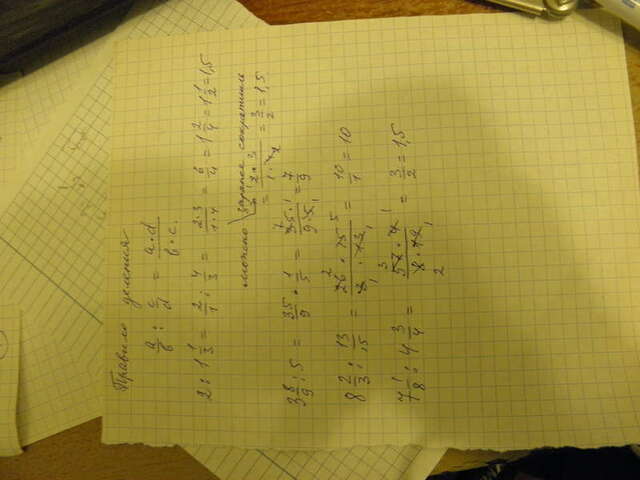 Правило деления
a/b : c/d = a·d / b·c.
2 : 1 1/3 = 2/1 : 4/3 = 2·3 / 1·4 = 6/4 = 1 2/4 = 1 1/2 = 1,5
можно заранее сократить
= 1 2·3 / 1·4 2 = 3/2 = 1,5
3 8/9 : 5 = 35/9 · 1/5 = 7 35·1 / 9·5 1 = 7/9
8 2/3 : 13/15 = 2 26·15 5 / 1 3·13 1 = 10/1 = 10
7 1/8 : 4 3/4 = 3 57·4 1 / 2 8·19 1 = 3/2 = 1,5